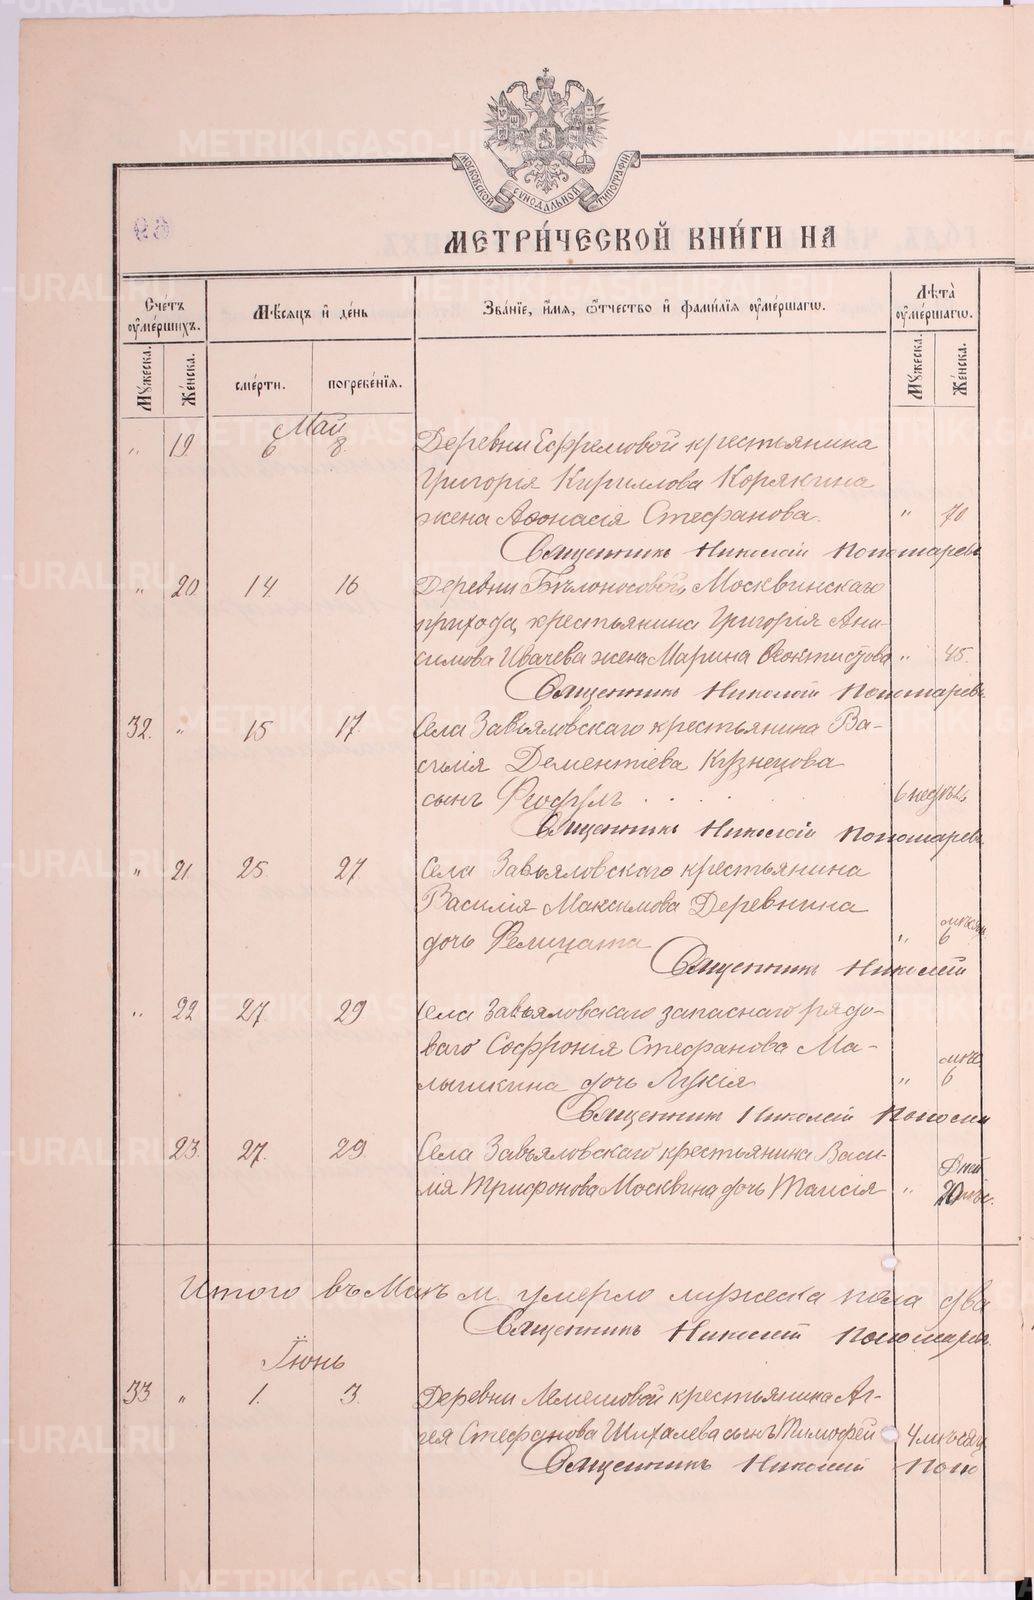 МОСКОВСКОЙ СѴНОДАЛЬНОЙ ТИПОГРАФІИ
69
МЕТРИ́ЧЕСКОЙ КНИ́ГИ НА
Сче́тъ ᲂу҆ме́ршихъ.
Мѣ́сяцъ и҆ де́нь
Зва́нїе, и҆́мя, ѻ҆́тчество и҆ фами́лїя ᲂу҆ме́ршагѡ.
Лѣта̀ ᲂу҆ме́ршагѡ.
Му́жеска.
Же́нска.
сме́рти.
погребе́нїя.
Му́жеска.
Же́нска.
Май
" 19. 6 8. Деревни Ефремовой крестьянина
Григорія Кириллова Корякина
жена Аѳонасія Стефанова. " 70
Священникъ Николай Пономаревъ
" 20. 14. 16 Деревни Бѣлоносовой, Москвинскаго
прихода, крестьянина Григорія Ани-
симова Ивачева жена Марина Ѳеоктистова " 45.
Священникъ Николай Пономаревъ
32. " 15 17. Села Завьяловскаго крестьянина Ва-
силія Дементіева Кузнецова
сынъ Ѳеодулъ . . . . . 6 недѣль
Священникъ Николай Пономаревъ
" 21. 25. 27 Села Завьяловскаго крестьянина
Василія Максимова Деревнина
дочь Фелицата " 6
Священникъ Николай
" 22 27 29. Села Завьяловскаго запаснаго рядо-
ваго Софронія Стефанова Ма-
лышкина дочь Лукія " 6
Священникъ Николай
23. 27. 29. Села Завьяловскаго крестьянина Васи-
лія Трифонова Москвина дочь Таисія " 20
Дней
Итого въ Маѣ м. умерло мужеска пола два
Священникъ Николай Пономарев
Іюнь
33 " 1. 3. Деревни Лемешовой крестьянина Аг-
гея Стефанова Шихалева сынъ Тимофей 4 мѣсяц
Священникъ Николай Поно